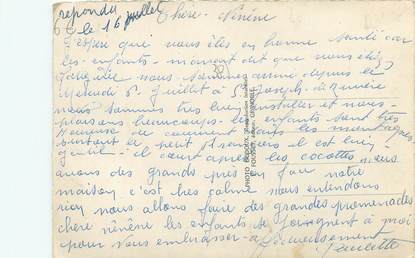 repondu
le 16 juillet
Chère Nénène
J'espère que vous êtes en bonne santé car
les enfants m'avait dit que vous étiez
fatiguée nous sommes arrivé depuis le
Mercredi 5 Juillet à St Joseph de Rivière
nous sommes très bien installer et nous
plaisons beaucoups les enfants sont très
heureuse de courrir dans les montagnes
surtout le petit
gentil il court après les cocottes nous
avons des grands près en face notre
maison c'est très calme nous entendons
rien nous allons faire des grandes promenades
chère nénène les enfants se joingnent à moi
pour vous embrasser affectueusement
Paulette